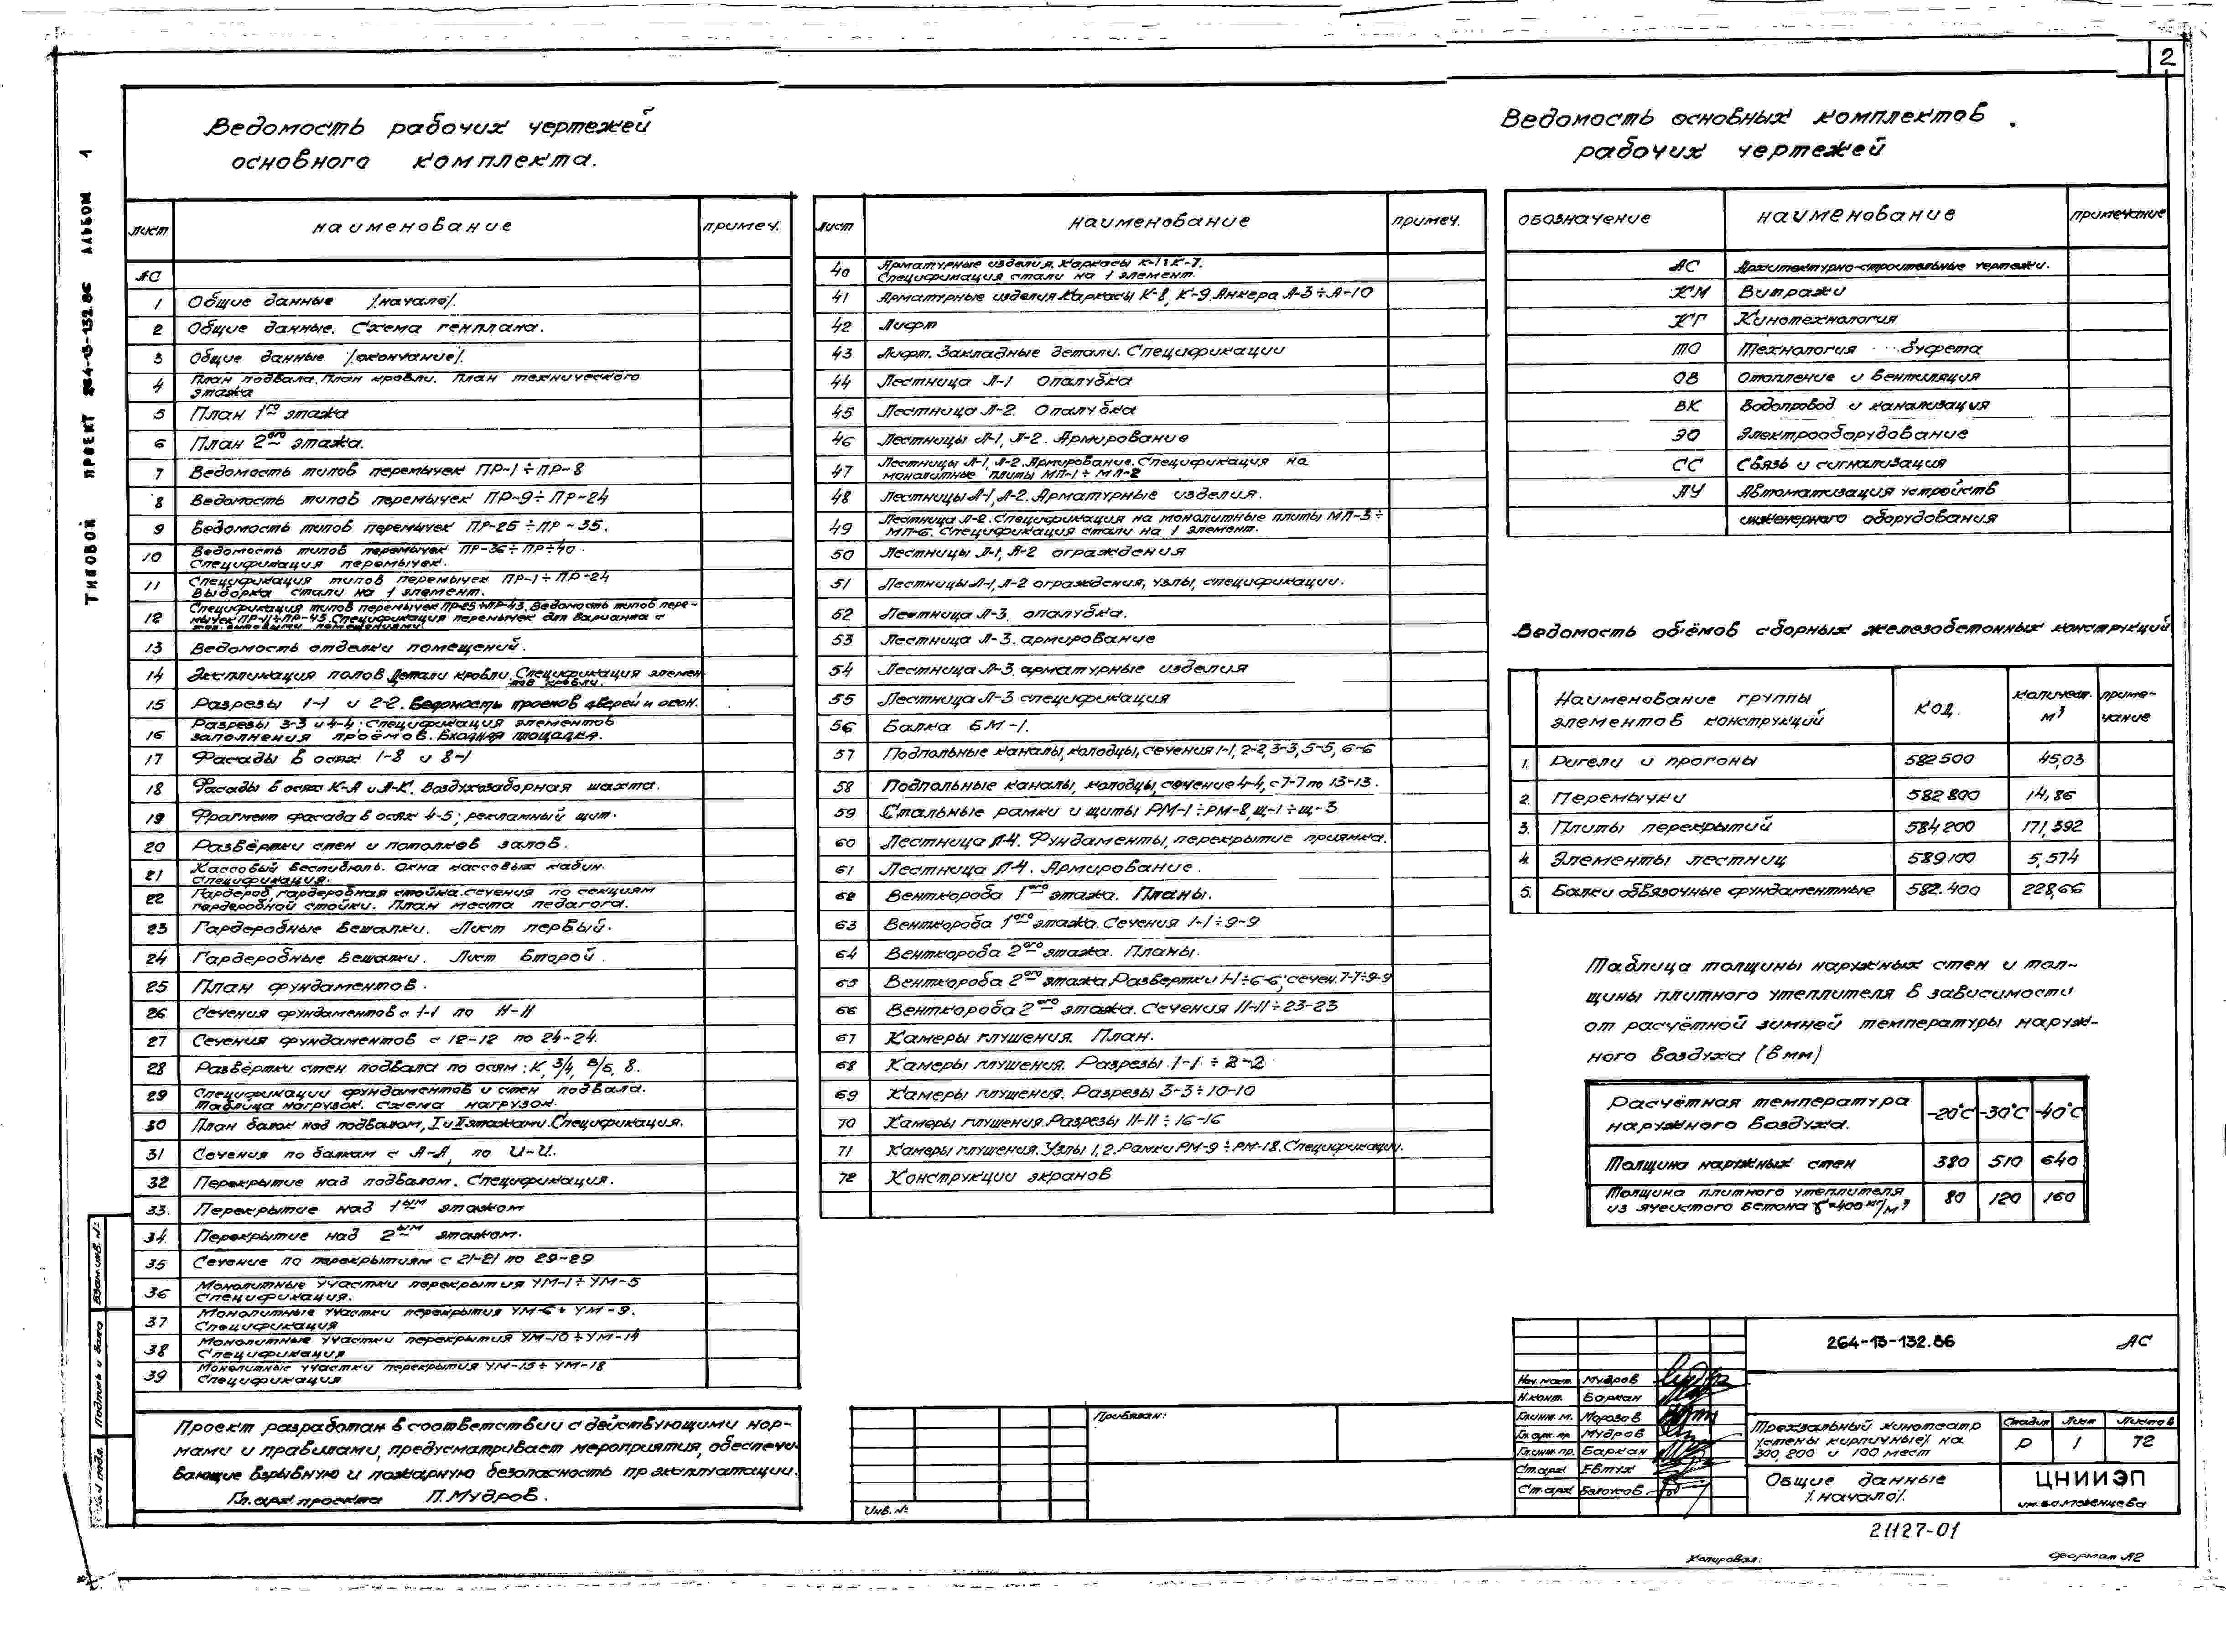 2
ТИПОВОЙ ПРОЕКТ 264-13-132.86 АЛЬБОМ 1
Ведомость рабочих чертежей
основного комплекта.
лист наименование примеч.
АС
1 Общие данные /начало/.
2 Общие данные. Схема генплана.
3 Общие данные /окончание/.
4 План подвала. План кровли. План технического
этажа
5 План 1го этажа
6 План 2ого этажа.
7 Ведомость типов перемычек ПР-1÷ПР-8
8 Ведомость типов перемычек ПР-9÷ПР-24
9 Ведомость типов перемычек ПР-25÷ПР-35.
10 Ведомость типов перемычек ПР-36÷ПР÷40.
Спецификация перемычек.
11 Спецификация типов перемычек ПР-1÷ПР-24
Выборка стали на 1 элемент.
12 Спецификация типов перемычек ПР-25÷ПР-43. Ведомость типов пере-
мычек ПР-11÷ПР-43. Спецификация перемычек для варианта с
помещениями.
13 Ведомость отделки помещений.
14 Экспликация полов. Детали кровли. Спецификация элемен-
тов кровли.
15 Разрезы 1-1 и 2-2. Ведомость проемов дверей и окон.
16 Разрезы 3-3 и 4-4; Спецификация элементов
заполнения проёмов. Входная площадка.
17 Фасады в осях 1-8 и 8-1
18 Фасады в осях К-А и А-К. Воздухозаборная шахта.
19 Фрагмент фасада в осях 4-5; рекламный щит.
20 Развёртки стен и потолков залов.
21 Кассовый вестибюль. Окна кассовых кабин.
Спецификация.
22 Гардероб, гардеробная стойка. сечения по секциям
гардеробной стойки. План места педагога.
23 Гардеробные вешалки. Лист первый.
24 Гардеробные вешалки. Лист второй.
25 План фундаментов.
26 Сечения фундаментов с 1-1 по 11-11
27 Сечения фундаментов с 12-12 по 24-24.
28 Развёртки стен подвала по осям: К, 3/4, В/Б, 8.
29 Спецификации фундаментов и стен подвала.
Таблица нагрузок. схема нагрузок.
30 План балок над подвалом, I и II этажами. Спецификация.
31 Сечения по балкам с А-А, по И-И.
32 Перекрытие над подвалом. Спецификация.
33. Перекрытие над 1ым этажом
34. Перекрытие над 2ым этажом.
35 Сечение по перекрытиям с 21-21 по 29-29
36 Монолитные участки перекрытия УМ-1÷УМ-5
Спецификация.
37 Монолитные участки перекрытия УМ-6÷УМ-9.
Спецификация
38 Монолитные участки перекрытия УМ-10÷УМ-14
Спецификация
39 Монолитные участки перекрытия УМ-15÷УМ-18
Спецификация
Проект разработан в соответствии с действующими нор-
мами и правилами, предусматривает мероприятия, обеспечи-
вающие взрывную и пожарную безопасность пр эксплуатации.
Гл. арх проекта П. Мудров.
лист наименование примеч.
40 Арматурные изделия. Каркасы К-1÷К-7.
Спецификация стали на 1 элемент.
41 Арматурные изделия Каркасы К-8, К-9. Анкера А-3÷А-10
42 Лифт
43 Лифт. Закладные детали. Спецификации
44 Лестница Л-1 Опалубка
45 Лестница Л-2. Опалубка
46 Лестницы Л-1, Л-2. Армирование
47 Лестницы Л-1, Л-2. Армирование. Спецификация на
монолитные плиты МЛ-1÷МЛ-2
48 Лестницы Л-1, Л-2. Арматурные изделия.
49 Лестница Л-2. Спецификация на монолитные плиты МЛ-3÷
МЛ-6. Спецификация стали на 1 элемент.
50 Лестницы Л-1, Л-2 ограждения
51 Лестницы Л-1, Л-2 ограждения, узлы, спецификации.
52 Лестница Л-3. опалубка.
53 Лестница Л-3. армирование
54 Лестница Л-3. арматурные изделия
55 Лестница Л-3 спецификация
56 Балка БМ-1.
57 Подпольные каналы, колодцы, сечения 1-1, 2-2, 3-3, 5-5, 6-6
58 Подпольные каналы, колодцы, сечение 4-4, с 7-7 по 13-13.
59 Стальные рамки и щиты РМ-1÷РМ-8, щ-1÷щ-3
60 Лестница Л-4. Фундаменты, перекрытие приямка.
61 Лестница Л-4. Армирование.
62 Венткороба 1ого этажа. Планы.
63 Венткороба 1ого этажа. Сечения 1-1÷9-9
64 Венткороба 2ого этажа. Планы.
65 Венткороба 2ого этажа Развертки 1-1÷6-6; сечен. 7-7÷9-9
66 Венткороба 2ого этажа. Сечения 11-11÷23-23
67 Камеры глушения. План.
68 Камеры глушения. Разрезы 1-1÷2-2
69 Камеры глушения. Разрезы 3-3÷10-10
70 Камеры глушения. Разрезы 11-11÷16-16
71 Камеры глушения. Узлы 1,2. Рамки РМ-9÷РМ-18. Спецификации.
72 Конструкции экранов
Ведомость основных комплектов
рабочих чертежей
обозначение наименование примечание
АС Архитектурно-строительные чертежи.
КМ Витражи
КТ Кинотехнология
ТО Технология буфета
ОВ Отопление и вентиляция
ВК Водопровод и канализация
ЭО Электрооборудование
СС Связь и сигнализация
АУ Автоматизация устройств
инженерного оборудования
Ведомость объёмов сборных железобетонных конструкций
Наименование группы
элементов конструкций Код. количест. м³ приме-
чание
1. Ригели и прогоны 582500 45,03
2. Перемычки 582800 14,86
3. Плиты перекрытий 584200 171,392
4. Элементы лестниц 589100 5,574
5. Балки обвязочные фундаментные 582.400 228,66
Таблица толщины наружных стен и тол-
щины плитного утеплителя в зависимости
от расчётной зимней температуры наруж-
ного воздуха (в мм)
Расчётная температура
наружного воздуха. -20°С -30°С -40°С
Толщина наружных стен 380 510 640
Толщина плитного утеплителя
из ячеистого бетона γ=400 кг/м³ 80 120 160
264-13-132.86 АС
Нач. маст. Мудров
Н.конт. Баркан
Гл.инж. м. Морозов
Гл. арх. пр. Мудров
Гл.инж. пр. Баркан
Ст.арх Евтух
Ст.арх
Трехзальный кинотеатр
/стены кирпичные/ на
300, 200 и 100 мест
Стадия Лист Листов
Р 1 72
Общие данные
/начало/.
ЦНИИЭП
им. Б.С. Мезенцева
Привязан:
Инв. №
Взам.инв. №
Подпись и дата
подл.
21127-01
Копировал:
Формат А2